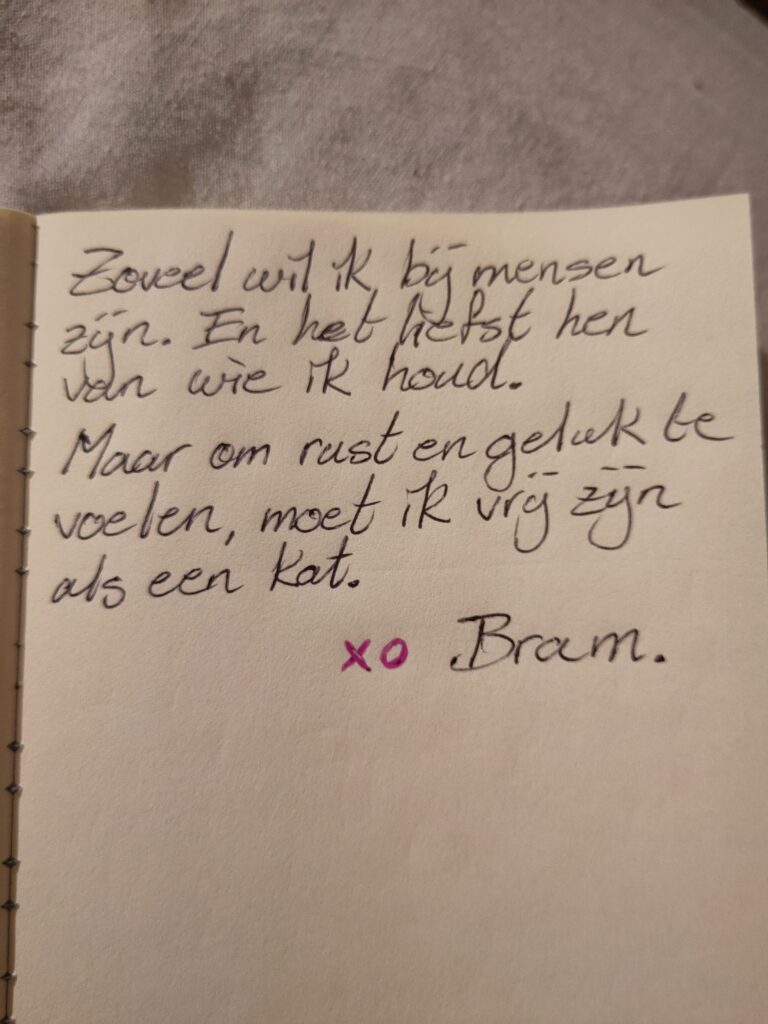 Zoveel wil ik bij mensen
zijn. En het liefst hen
van wie ik houd.
Maar om rust en geluk te
voelen, moet ik vrij zijn
als een kat.
xo .Bram.